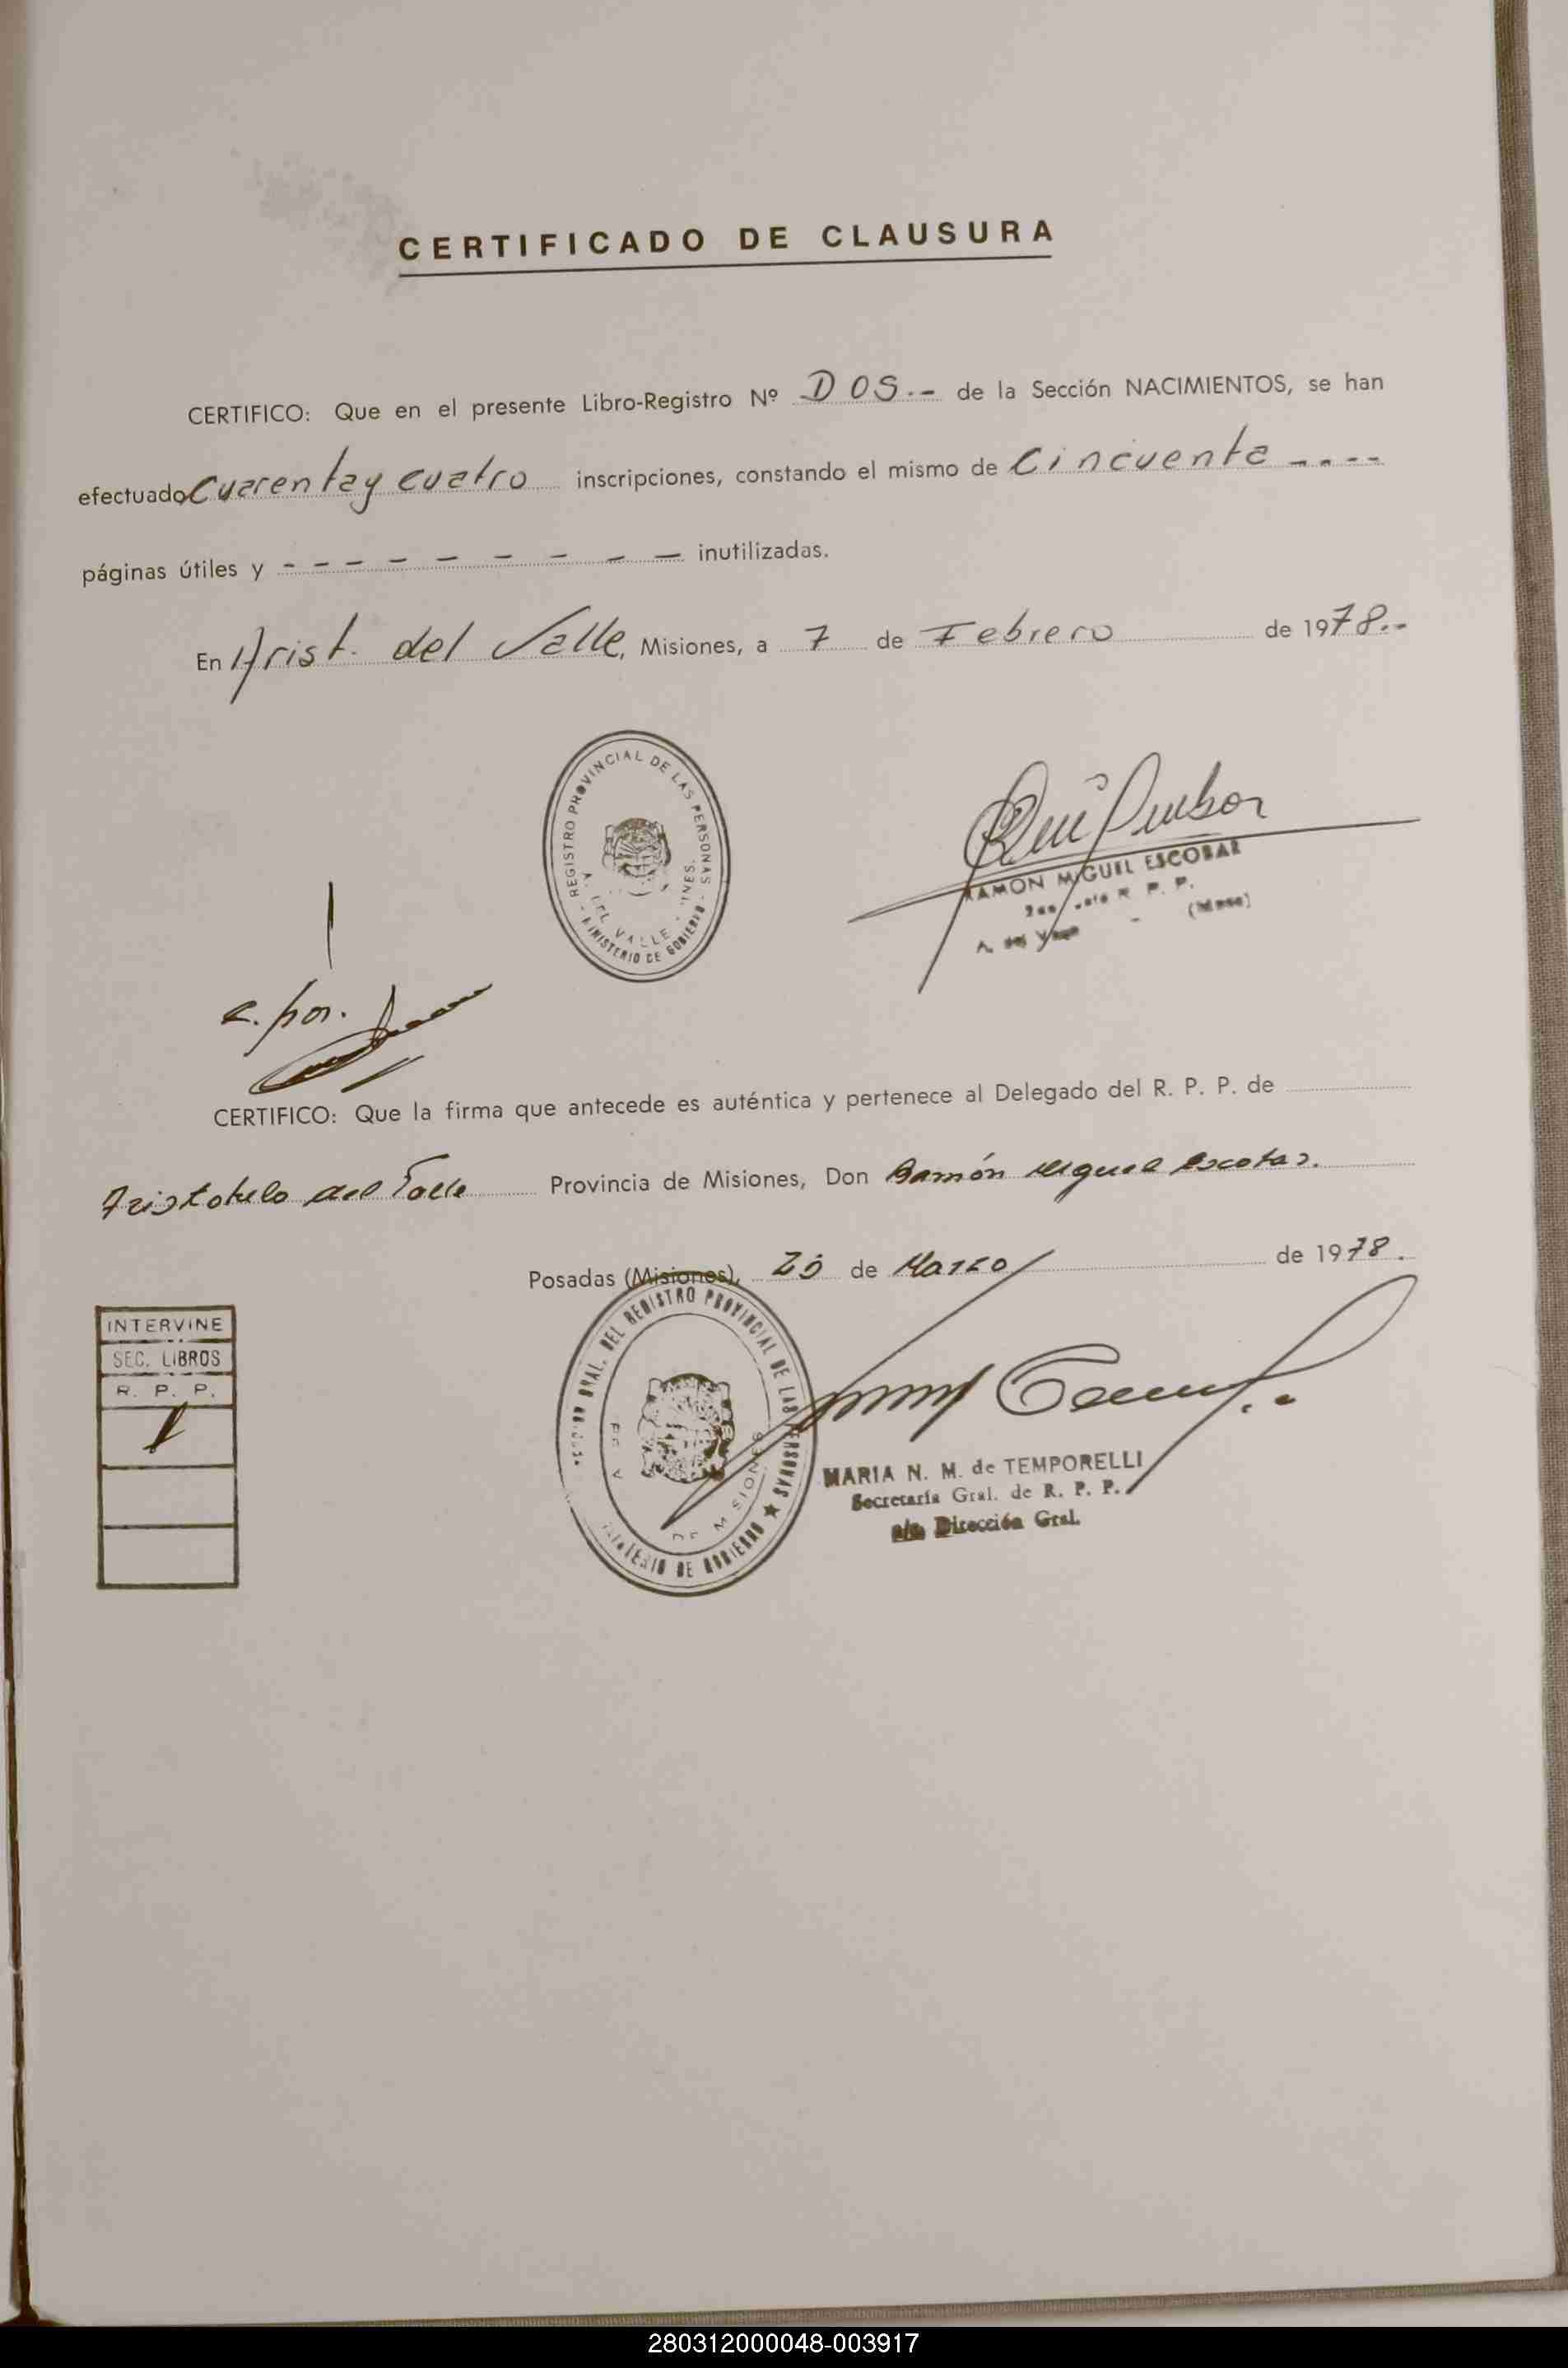 CERTIFICADO DE CLAUSURA
CERTIFICO: Que en el presente Libro-Registro Nº DOS.- de la Sección NACIMIENTOS, se han
efectuado Cuarenta y cuatro inscripciones, constando el mismo de Cincuenta ----
páginas útiles y - - - - - - - - - inutilizadas.
En Arist. del Valle, Misiones, a 7 de Febrero de 1978.-
REGISTRO PROVINCIAL DE LAS PERSONAS
A. DEL VALLE
MINISTERIO DE GOBIERNO
RAMON MIGUEL ESCOBAR
R. P. P.
A. del Valle (Mnes)
CERTIFICO: Que la firma que antecede es auténtica y pertenece al Delegado del R. P. P. de
Aristobulo del Valle Provincia de Misiones, Don Ramón Miguel Escobar.
Posadas (Misiones), de Marzo de 1978.
INTERVINE
SEC. LIBROS
R. P. P.
GRAL. DEL REGISTRO PROVINCIAL DE LAS PERSONAS
DE MISIONES
MINISTERIO DE GOBIERNO
MARIA N. M. de TEMPORELLI
Secretaría Gral. de R. P. P.
a/c Dirección Gral.
280312000048-003917